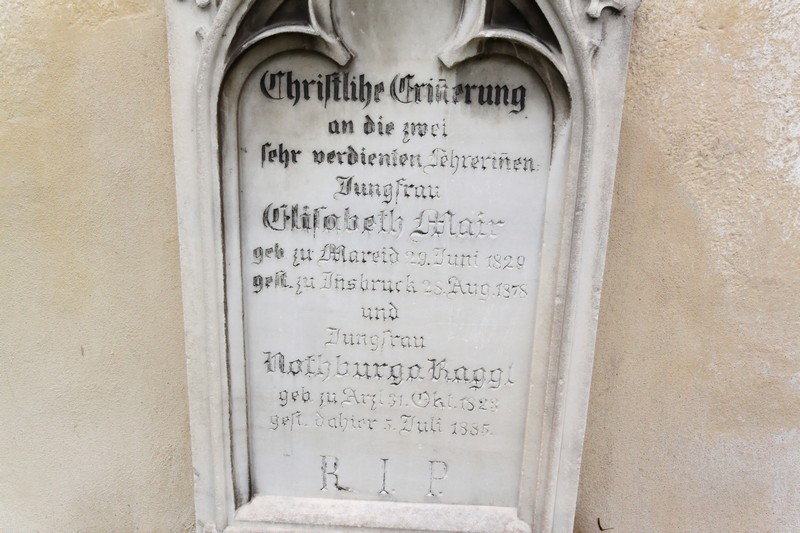 Christlihe Erin̄erung
an die zwei
sehr verdienten Lehrerin̄en:
Jungfrau
Elisabeth Mair
geb zu Mareid 29. Juni 1829
gest. zu In̄sbruck 28. Aug. 1878
und
Jungfrau
Nothburga Raggl
geb zu Arzl 31. Okt. 1823
gest. dahier 5. Juli 1885.
R I P